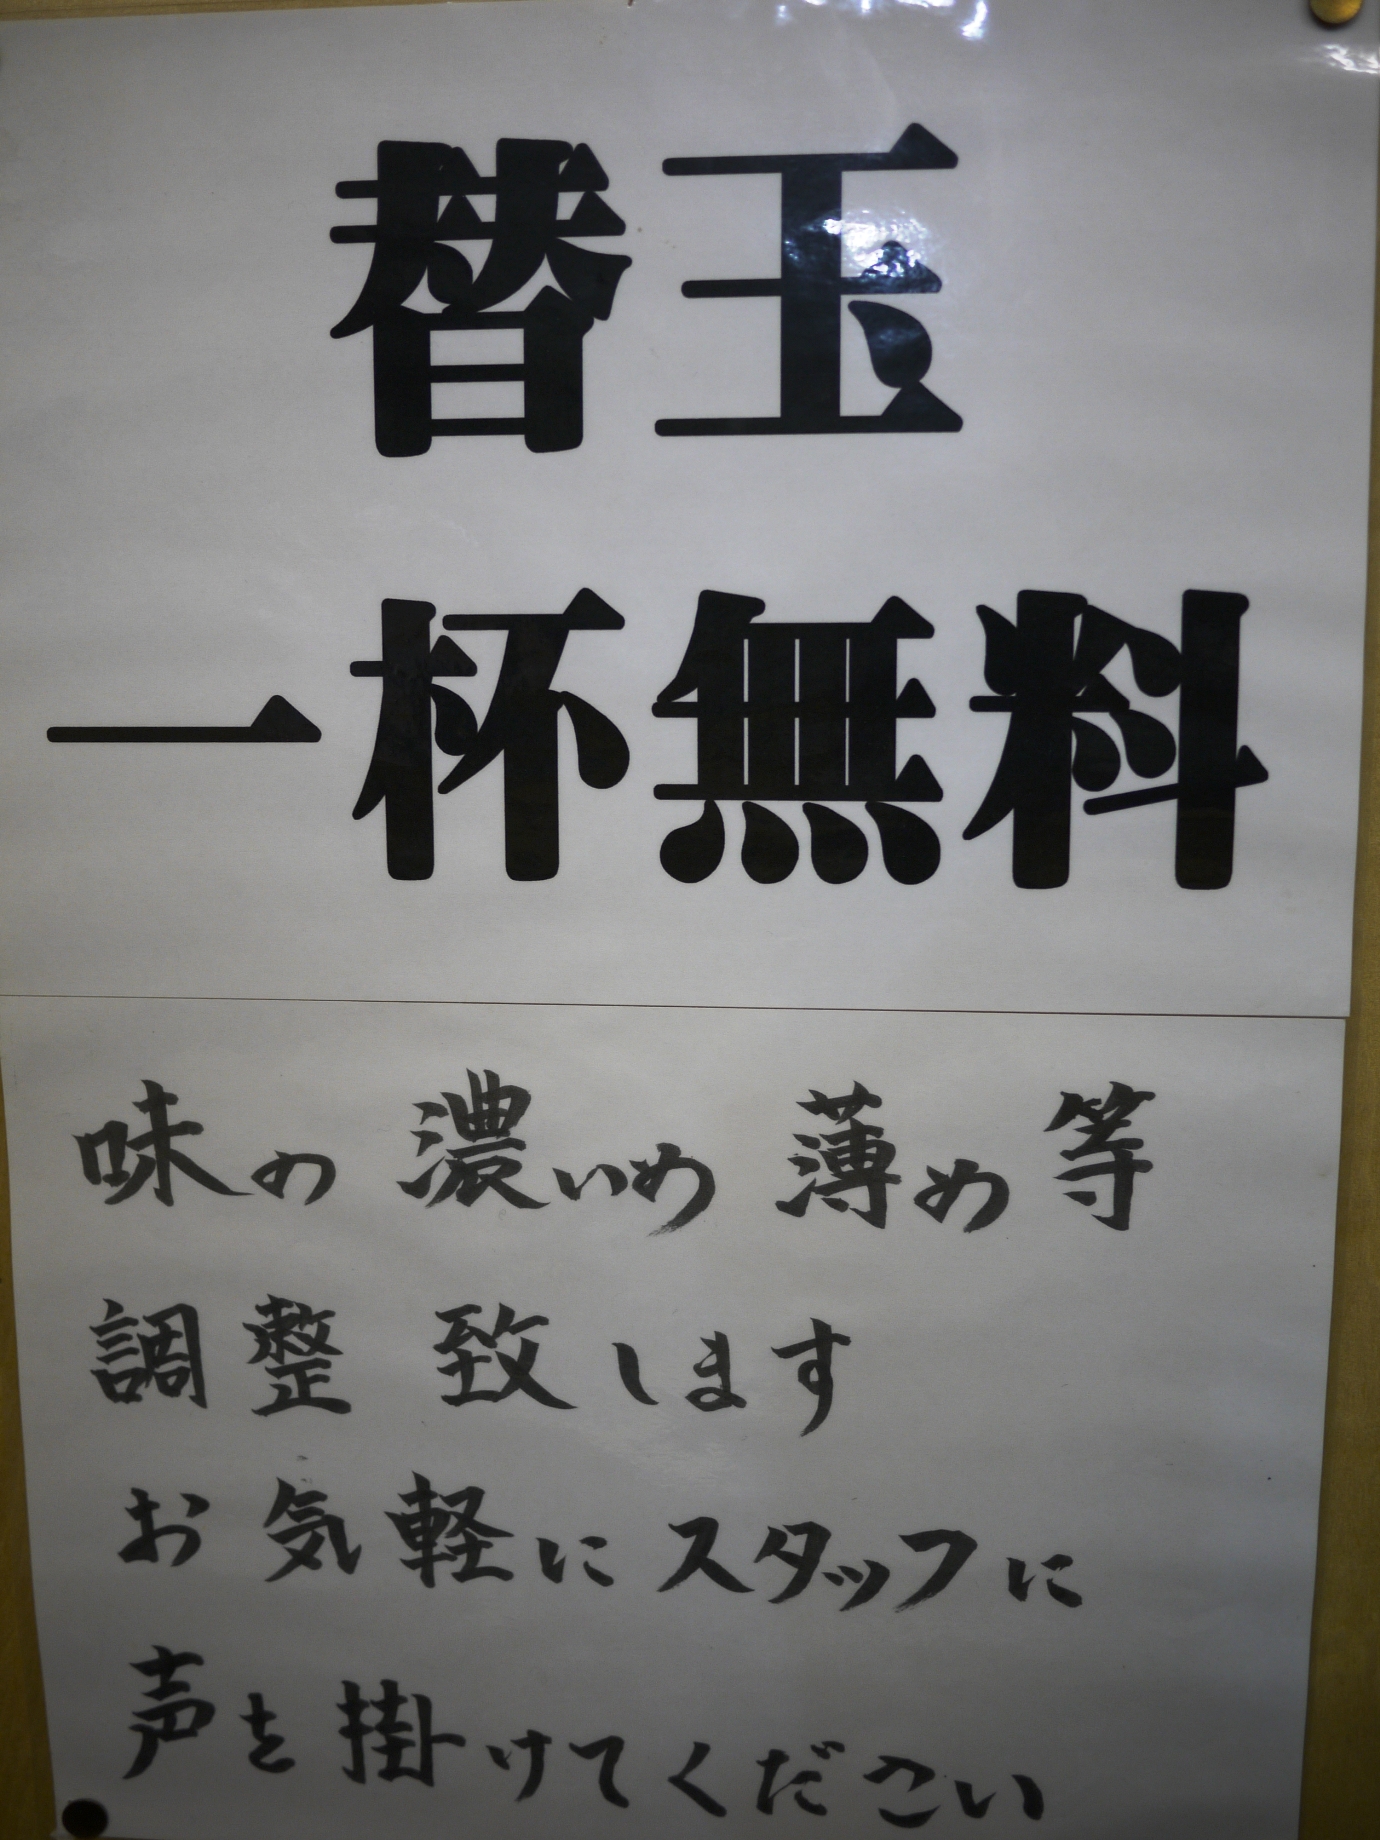 替玉
一杯無料
味の濃いめ薄め等
調整致します
お気軽にスタッフに
声を掛けてください